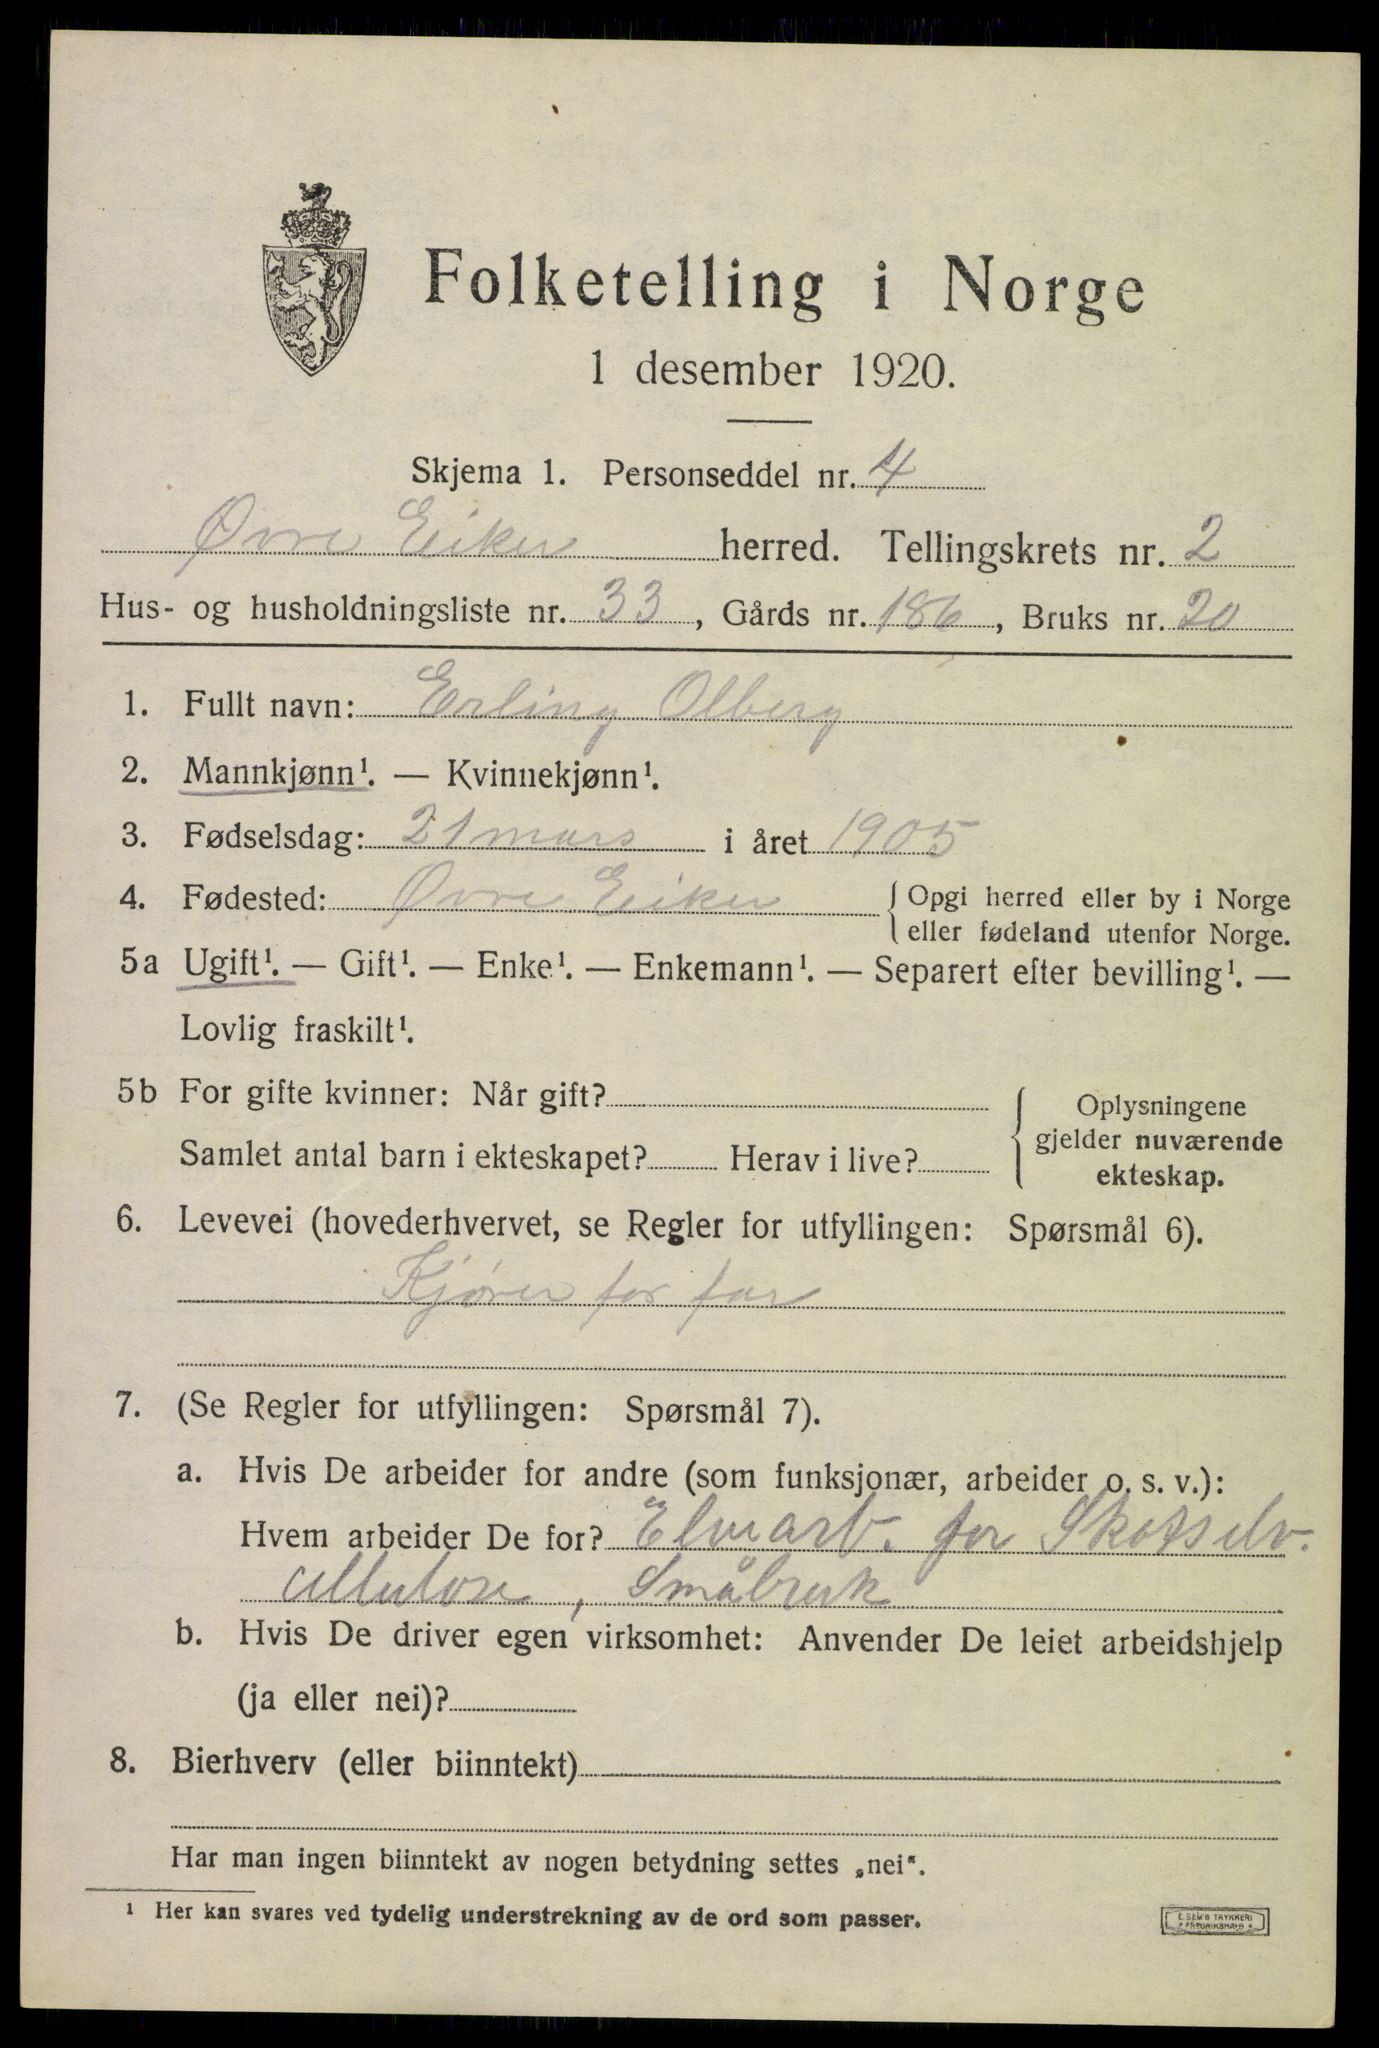 Folketelling i Norge
1 desember 1920.
Skjema 1. Personseddel nr. 4
Øvre Eiker herred. Tellingskrets nr. 2
Hus- og husholdningsliste nr. 33, Gårds nr. 186, Bruks nr. 20
1. Fullt navn: Erling Olberg
2. Mannkjønn¹. — Kvinnekjønn¹.
3. Fødselsdag: 21 mars i året 1905
4. Fødested: Øvre Eiker { Opgi herred eller by i Norge
eller fødeland utenfor Norge.
5a Ugift¹. — Gift¹. — Enke¹. — Enkemann¹. — Separert efter bevilling¹. —
Lovlig fraskilt¹.
5b For gifte kvinner: Når gift?
Samlet antal barn i ekteskapet? Herav i live?
{ Oplysningene
gjelder nuværende
ekteskap.
6. Levevei (hovederhvervet, se Regler for utfyllingen: Spørsmål 6).
Kjører for far
7. (Se Regler for utfyllingen: Spørsmål 7).
a. Hvis De arbeider for andre (som funksjonær, arbeider o. s. v.):
Hvem arbeider De for? Elvearb. for Skotselv.
cellulose, Småbruk
b. Hvis De driver egen virksomhet: Anvender De leiet arbeidshjelp
(ja eller nei)?
8. Bierhverv (eller biinntekt)
Har man ingen biinntekt av nogen betydning settes „nei“.
¹ Her kan svares ved tydelig understrekning av de ord som passer.
E. SEM'S TRYKKERI
* FREDRIKSHALD *